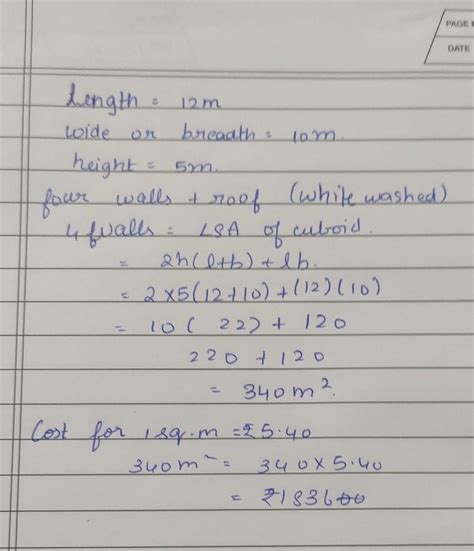 PAGE
DATE
Length = 12m
wide or breadth = 10m.
height = 5m.
four walls + roof (white washed)
4 walls = LSA of cuboid.
= 2h(l+b) + lb.
= 2×5(12+10)+(12)(10)
= 10( 22) + 120
220 + 120
= 340 m².
Cost for 1 sq.m = ₹5.40
340m² = 340×5.40
= ₹183600